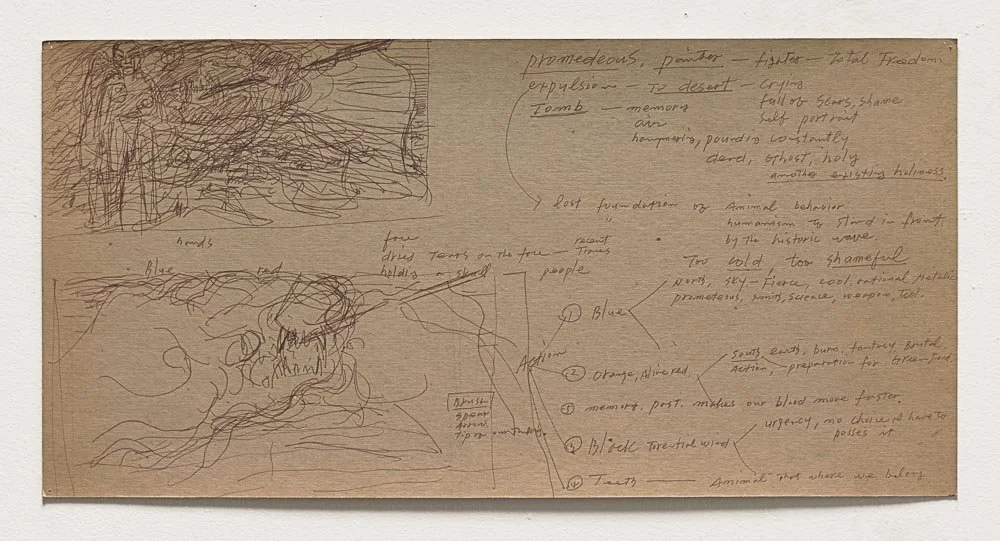 promedeous, painter — fighter — Total Freedom
expulsion — To desert — crying
full of scars, shame
Tomb — memory
self portrait
air
hammering, pounding constantly
dead, ghost, holy
another existing holiness.
lost foundation of Animal behavior
humanism to stand in front
by the historic wave.
Too cold too shameful
hands
face
dried Tears on the face — recent Times
holding a skull
people
Blue red
north, sky — fierce, cool, rational, Metalic
prometeous, smith, science, weapon, Tool.
① Blue
Action
South, earth, burn, fantasy, Brutal
Action, — preparation for
② Orange, Alive red
③ memory. past. makes our blood move faster.
Brush
spear
Arrow
tip of our
urgency, no choice I have to
posses it
③ Black Torential wind
④ Teeth — Animal that where we belong